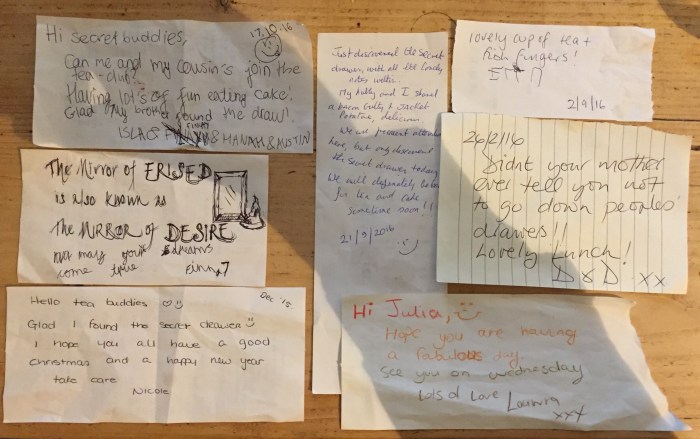 17.10.16
Hi secret buddies,
Can me and my cousin's join the
tea-club?
Having lot's of fun eating cake!
Glad my brother found the draw!
ISLA & FINLAY & HANAH & AUSTIN
The Mirror of ERISED
is also known as
The MIRROR of DESIRE
may your dreams
come true Finn 7
Dec '15
Hello tea buddies
Glad I found the secret drawer
I hope you all have a good
Christmas and a happy new year
take care
Nicole
Just discovered the secret
drawer, with all the lovely
notes within.
My hubby and I shared
a bacon butty & Jacket
Potatoe, delicious.
We are frequent
here, but only discovered
the secret drawer today
We will definitely be back
for tea and cake
sometime soon!!
21/9/2016
lovely cup of tea +
fish fingers!
2/9/16
26/2/16
Didnt your mother
ever tell you not
to go down peoples'
drawes!!
Lovely Lunch!
D & D xx
Hi Julia,
Hope you are having
a fabulous day.
see you on wednesday
Lots of Love
xxx